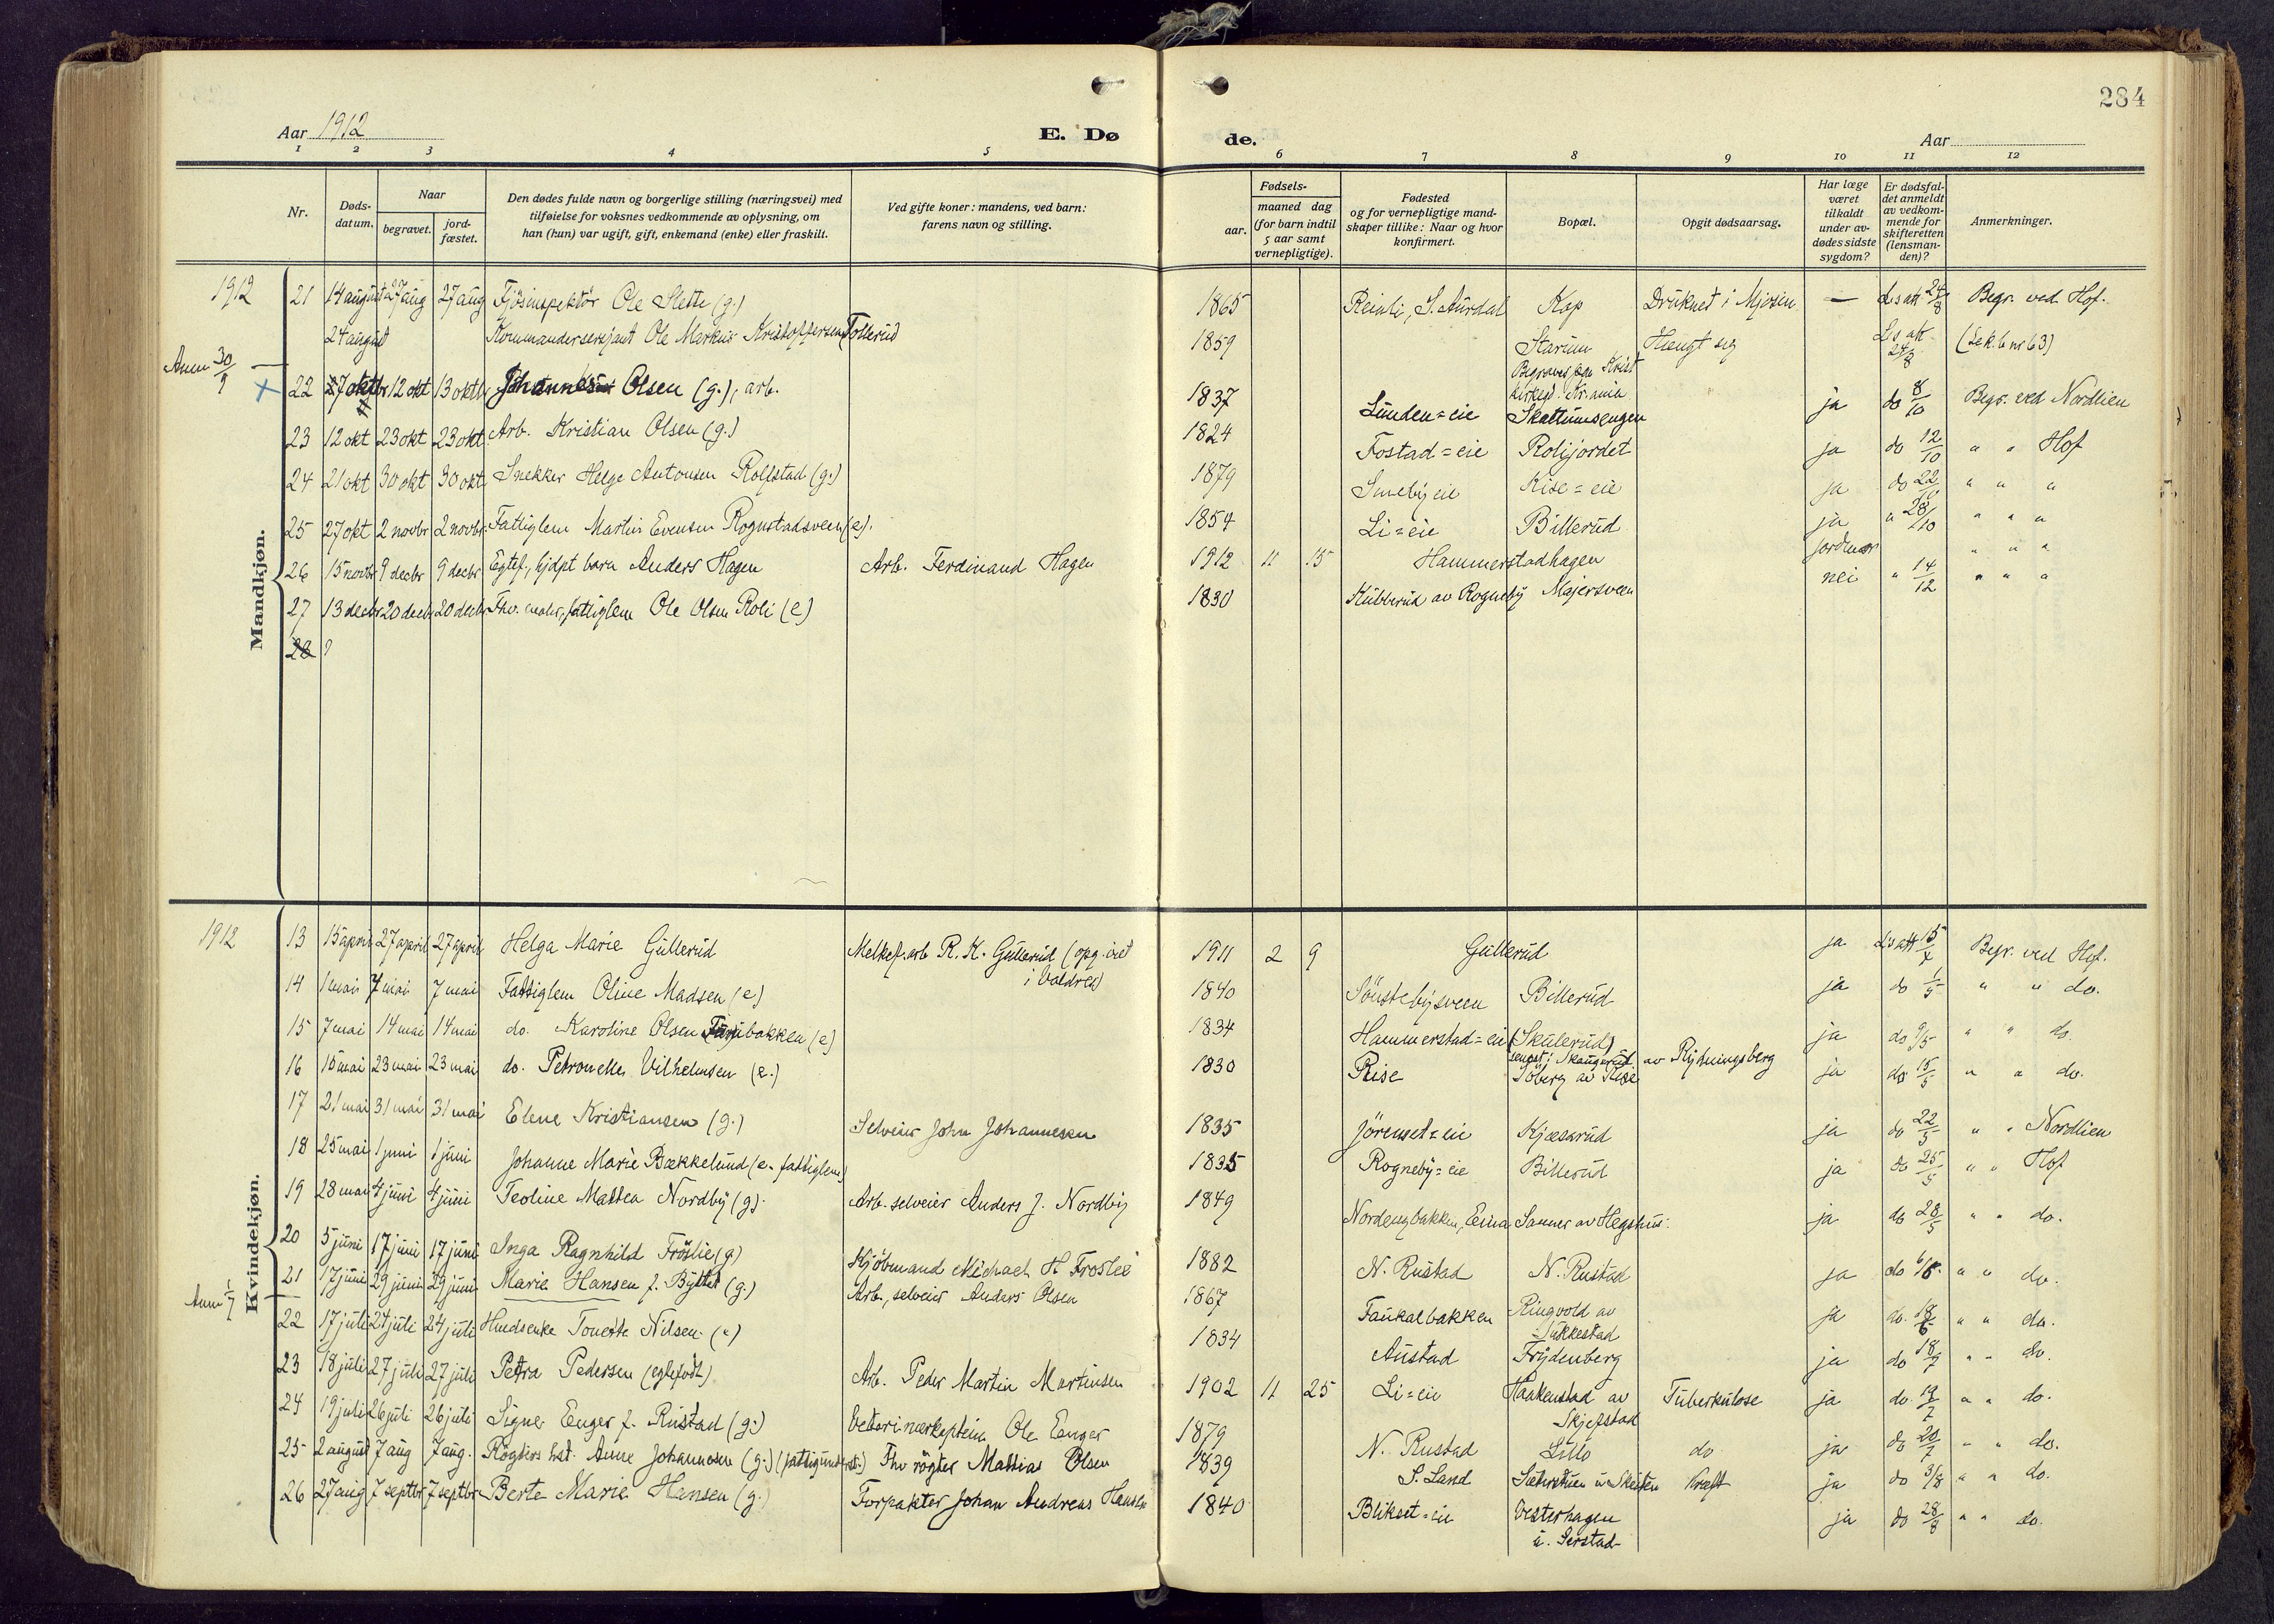 284
Aar 1912
E. Dø
de.
Aar
1 2 3 4 5 6 7 8 9 10 11 12
Nr.
Døds-
datum.
Naar
begravet.
jord-
fæstet.
Den dødes fulde navn og borgerlige stilling (næringsvei) med
tilføielse for voksnes vedkommende av oplysning, om
han (hun) var ugift, gift, enkemand (enke) eller fraskilt.
Ved gifte koner: mandens, ved barn:
farens navn og stilling.
Fødsels-
aar.
maaned dag
(for barn indtil
5 aar samt
vernepligtige).
Fødested
og for vernepligtige mand-
skaper tillike: Naar og hvor
konfirmert.
Bopæl.
Opgit dødsaarsag.
Har læge
været
tilkaldt
under av-
dødes sidste
sygdom?
Er dødsfal-
det anmeldt
av vedkom-
mende for
skifteretten
(lensman-
den)?
Anmerkninger.
Mandkjøn.
1912 21 14 august 27 aug 27 aug Fjösinspektör Ole Slette (g.) 1865 Reinli, S. Aurdal Kap Druknet i Mjøsen — Ls att 24/8 Begr. ved Hof.
24 august Kommandersersjant Ole Markus Kristoffersen Tollerud 1859 Starum Hængt sig Ls att 24/8 (Se k. b nr 63)
Begraves paa Krist
kirkegd. Kr.ania
Anm 30/9
22 7 oktbr 12 okt 13 oktbr Johannes Olsen (g.), arb. 1837 Lunden=eie Skattumsengen ja do 8/10 Begr. ved Nordlien
23 12 okt 23 okt 23 okt Arb. Kristian Olsen (g.) 1824 Fostad=eie Rolijordet ja do 12/10 " " Hof
24 21 okt 30 okt 30 okt Snekker Helge Antonsen Rolfstad (g.) 1879 Smeby eie Kise=eie ja do 22/10 " " "
25 27 okt 2 novbr 2 novbr Fattiglem Martin Evensen Rognstadsveen (e). 1854 Li=eie Billerud ja " 28/10 " " "
26 15 novbr 9 decbr 9 decbr Egtef., hjdpt barn Anders Hagen Arb. Ferdinand Hagen 1912 11 15 Hammerstadhagen jordmor " " "
27 13 decbr 20 decbr 20 decbr Fhv. maler, fattiglem Ole Olsen Roli (e) 1830 Kubberud av Rogneby Majersveen nei " 14/12 " " "
28 ?
Kvindekjøn.
1912 13 15 april 27 april 27 april Helga Marie Gullerud Melkef.arb R. K. Gullerud (opg.
i Valdres) 1911 2 9 Gullerud ja Ls att 15/4 Begr. ved Hof.
14 1 mai 7 mai 7 mai Fattiglem Oline Madsen (e) 1840 Sönstebysveen Billerud ja do 1/5 " " do.
15 7 mai 14 mai 14 mai do. Karoline Olsen Furubakken (e) 1834 Hammerstad=eie (Skulerud) ja do 9/5 " " do.
16 15 mai 23 mai 23 mai do. Petronelle Vilhelmsen (e.) 1830 Rise senest i Skaugerud av Rydningsberg
Soberg av Rise ja do 15/5 " " do.
17 21 mai 31 mai 31 mai Elene Kristiansen (g.) Selveier John Johannesen 1835 Jörenset=eie Kjæsarud ja do 22/5 " " Nordlien
18 25 mai 1 juni 1 juni Johanne Marie Bækkelund (e. fattiglem) 1835 Rogneby=eie Billerud ja do 25/5 " " Hof
19 28 mai 4 juni 4 juni Teoline Mattea Nordby (g). Arb. selveier Anders J. Nordby 1849 Nordengbakken, Eina Sanner av Hegshus. ja do 28/5 " " do.
20 5 juni 17 juni 17 juni Inga Ragnhild Fröslie (g) Kjöbmand Michael H Froslie 1882 N. Rustad N. Rustad ja do 6/6. " " do.
Anm 1/7
21 17 juni 29 juni 29 juni Marie Hansen f. Byttet (g.) Arb., selveier Anders Olsen 1867 Faukalbakken Ringvold av
Sukkestad ja do. 18/6 " " do.
22 17 juli 24 juli 24 juli Husenke Tonette Nilsen (e) 1834 Austad Frydenberg ja do 18/7 " " do.
23 18 juli 27 juli 27 juli Petra Pedersen (eglefödt) Arb. Peder Martin Martinsen 1902 11 25 Li=eie Haakenstad av
Skjefstad Tuberkulose ja do 19/7 " " do.
24 19 juli 26 juli 26 juli Signe Enger f. Rustad (g.) Veterinærkaptein Ole Enger 1879 N. Rustad Lillo do ja do 20/7 " " do.
25 2 august 7 aug 7 aug. Rögters hst. Anne Johannesen (g.) (fattigunderst.) Fhv rögter Mattias Olsen 1839 S. Land Kræft ja do 3/8 " " do.
26 27 aug 7 septbr 7 septbr Berte Marie Hansen (g.) Forpakter Johan Andreas Hansen 1840 Blikset=eie Vesterhagen
u. Serstad ja do 28/8 " " do.